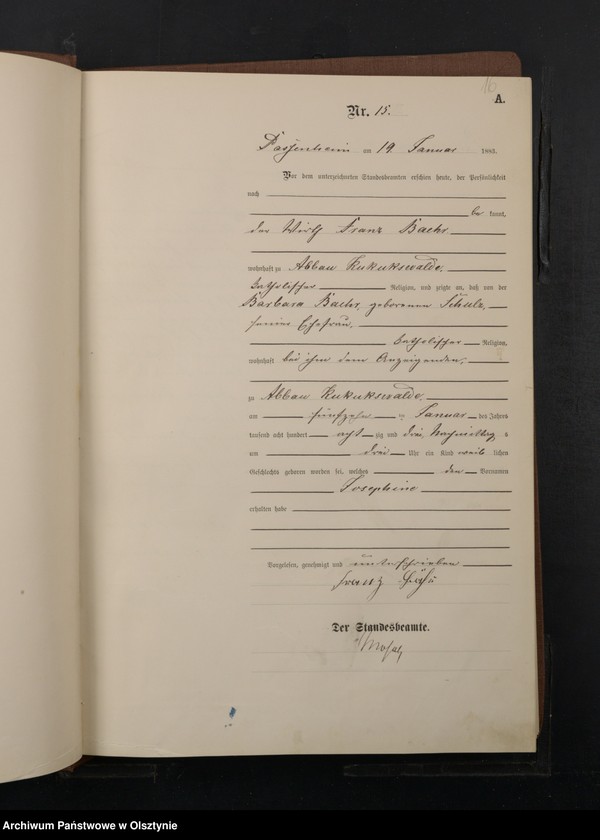 16
A.
Nr. 15.
Passenheim am 19 Januar 1883.
Vor dem unterzeichneten Standesbeamten erschien heute, der Persönlichkeit
nach
be kannt,
der Wirth Franz Baehr
wohnhaft zu Abbau Kukukswalde,
katholischer Religion, und zeigte an, daß von der
Barbara Baehr, geborenen Schulz,
seiner Ehefrau,
katholischer Religion,
wohnhaft bei ihm dem Anzeigenden,
zu Abbau Kukukswalde,
am fünfzehn ten Januar des Jahres
tausend acht hundert acht zig und drei, Nachmittag s
um drei Uhr ein Kind weib lichen
Geschlechts geboren worden sei, welches den Vornamen
Josephine
erhalten habe
Vorgelesen, genehmigt und unterschrieben
Franz
Der Standesbeamte.
Archiwum Państwowe w Olsztynie